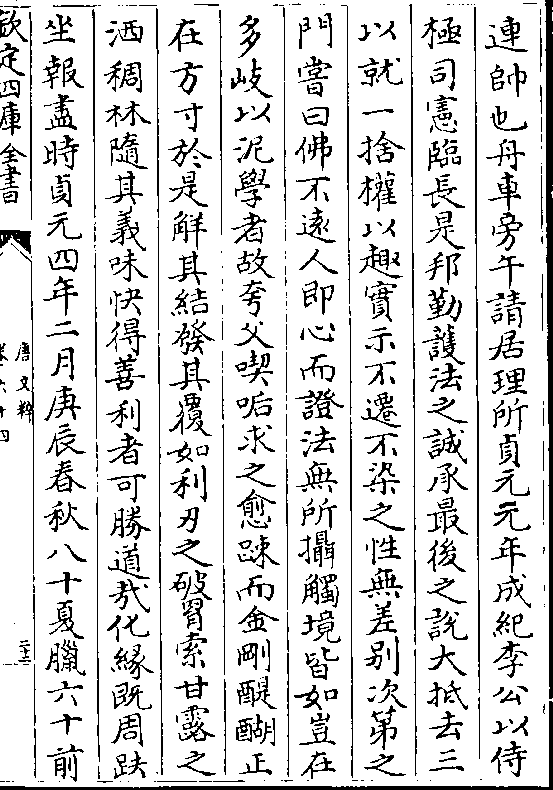 連帥也舟車旁午請居理所貞元元年成紀李公以侍
極司憲臨長是邦勤護法之誠承最後之説大抵去三
以就一捨權以趣實示不遷不染之性無差别次第之
門嘗曰佛不遠人即心而證法無所攝觸境皆如豈在
多岐以泥學者故夸父喫詬求之愈踈而金剛醍醐正
在方寸於是解其結發其覆如利刃之破𦊰索甘露之
洒稠林隨其義味快得善利者可勝道哉化縁既周趺
坐報盡時貞元四年二月庚辰春秋八十夏臘六十前
欽定四庫全書
唐文粹
卷六十四